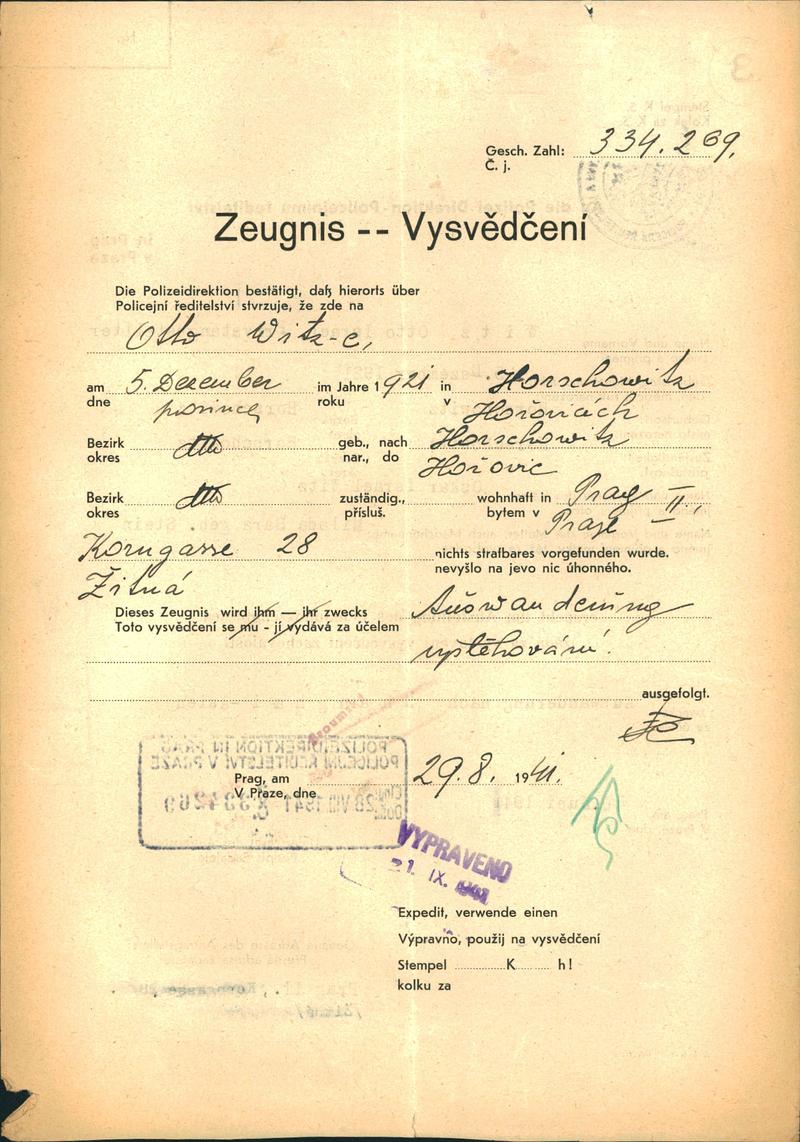 Gesch. Zahl: 334.269.
Č. j.
Zeugnis -- Vysvědčení
Die Polizeidirektion bestätigt, daß hierorts über
Policejní ředitelství stvrzuje, že zde na
Otto
am 5. Dezember im Jahre 1921 in Horschowitz
dne prosince roku v Hořovicích
Bezirk dtto geb., nach Horschowitz
okres nar., do Hořovic
Bezirk dtto zuständig., wohnhaft in Prag II.,
okres přísluš. bytem v Praze
Korngasse 28 nichts strafbares vorgefunden wurde.
Žitná nevyšlo na jevo nic úhonného.
Dieses Zeugnis wird ihm — ihr zwecks Auswanderung
Toto vysvědčení se mu - jí vydává za účelem
vystěhování.
ausgefolgt.
POLIZEIDIREKTION IN PRAG
POLICEJNÍ ŘEDITELSTVÍ V PRAZE
Prag, am 29.8. 1941.
V Praze, dne
28 VIII 1941 334269
VYPRAVENO
IX. 1941
Expedit, verwende einen
Výpravno, použij na vysvědčení
Stempel K h!
kolku za